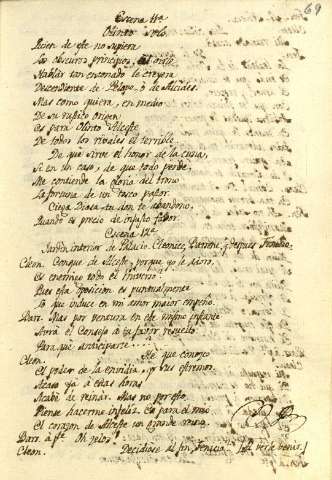 69
Escena 11ª
Olinto solo.
Quien de este no supiera
los obscuros principios, al oirlo
Hablar tan enconado le creyera
Descendiente de Pelope, ò de Alcides.
Mas como quiera, en medio
De su rustico origen,
Es para Olinto Alceste
De todos los rivales el terrible.
De que sirve el honor de la cuna,
Si en un caso, de que todo pende,
Me contiende la gloria del trono
La fortuna de un tosco pastor.
Ciega Diosa tu don te abandono,
Quando es precio de injusto favor.
Escena 12ª
Jardin interior de Palacio. Cleonice, Barsene, y despues Fenicio.
Cleon. Conque de Alceste, porque yo le adoro,
Es enemigo todo el Universo?
Pues esa oposicion es puntualmente
Lo que induce en mi amor maior empeño.
Bars. Mas por ventura en este mismo instante
Avrá el Consejo à tu favor resuelto.
Para què anticiparte...?
Cleon. Hè que conozco
El poder de la envidia, y sus esfuerzos.
Acaso yá à estas horas
Acabé de reinar. Mas no por esto
Piense hacerme infeliz. Es para el mio
El corazon de Alceste un grande reino.
Bars. à pte. Oh zelos!
Cleon. Decidiose al fin, Fenicio? [al verle benir]